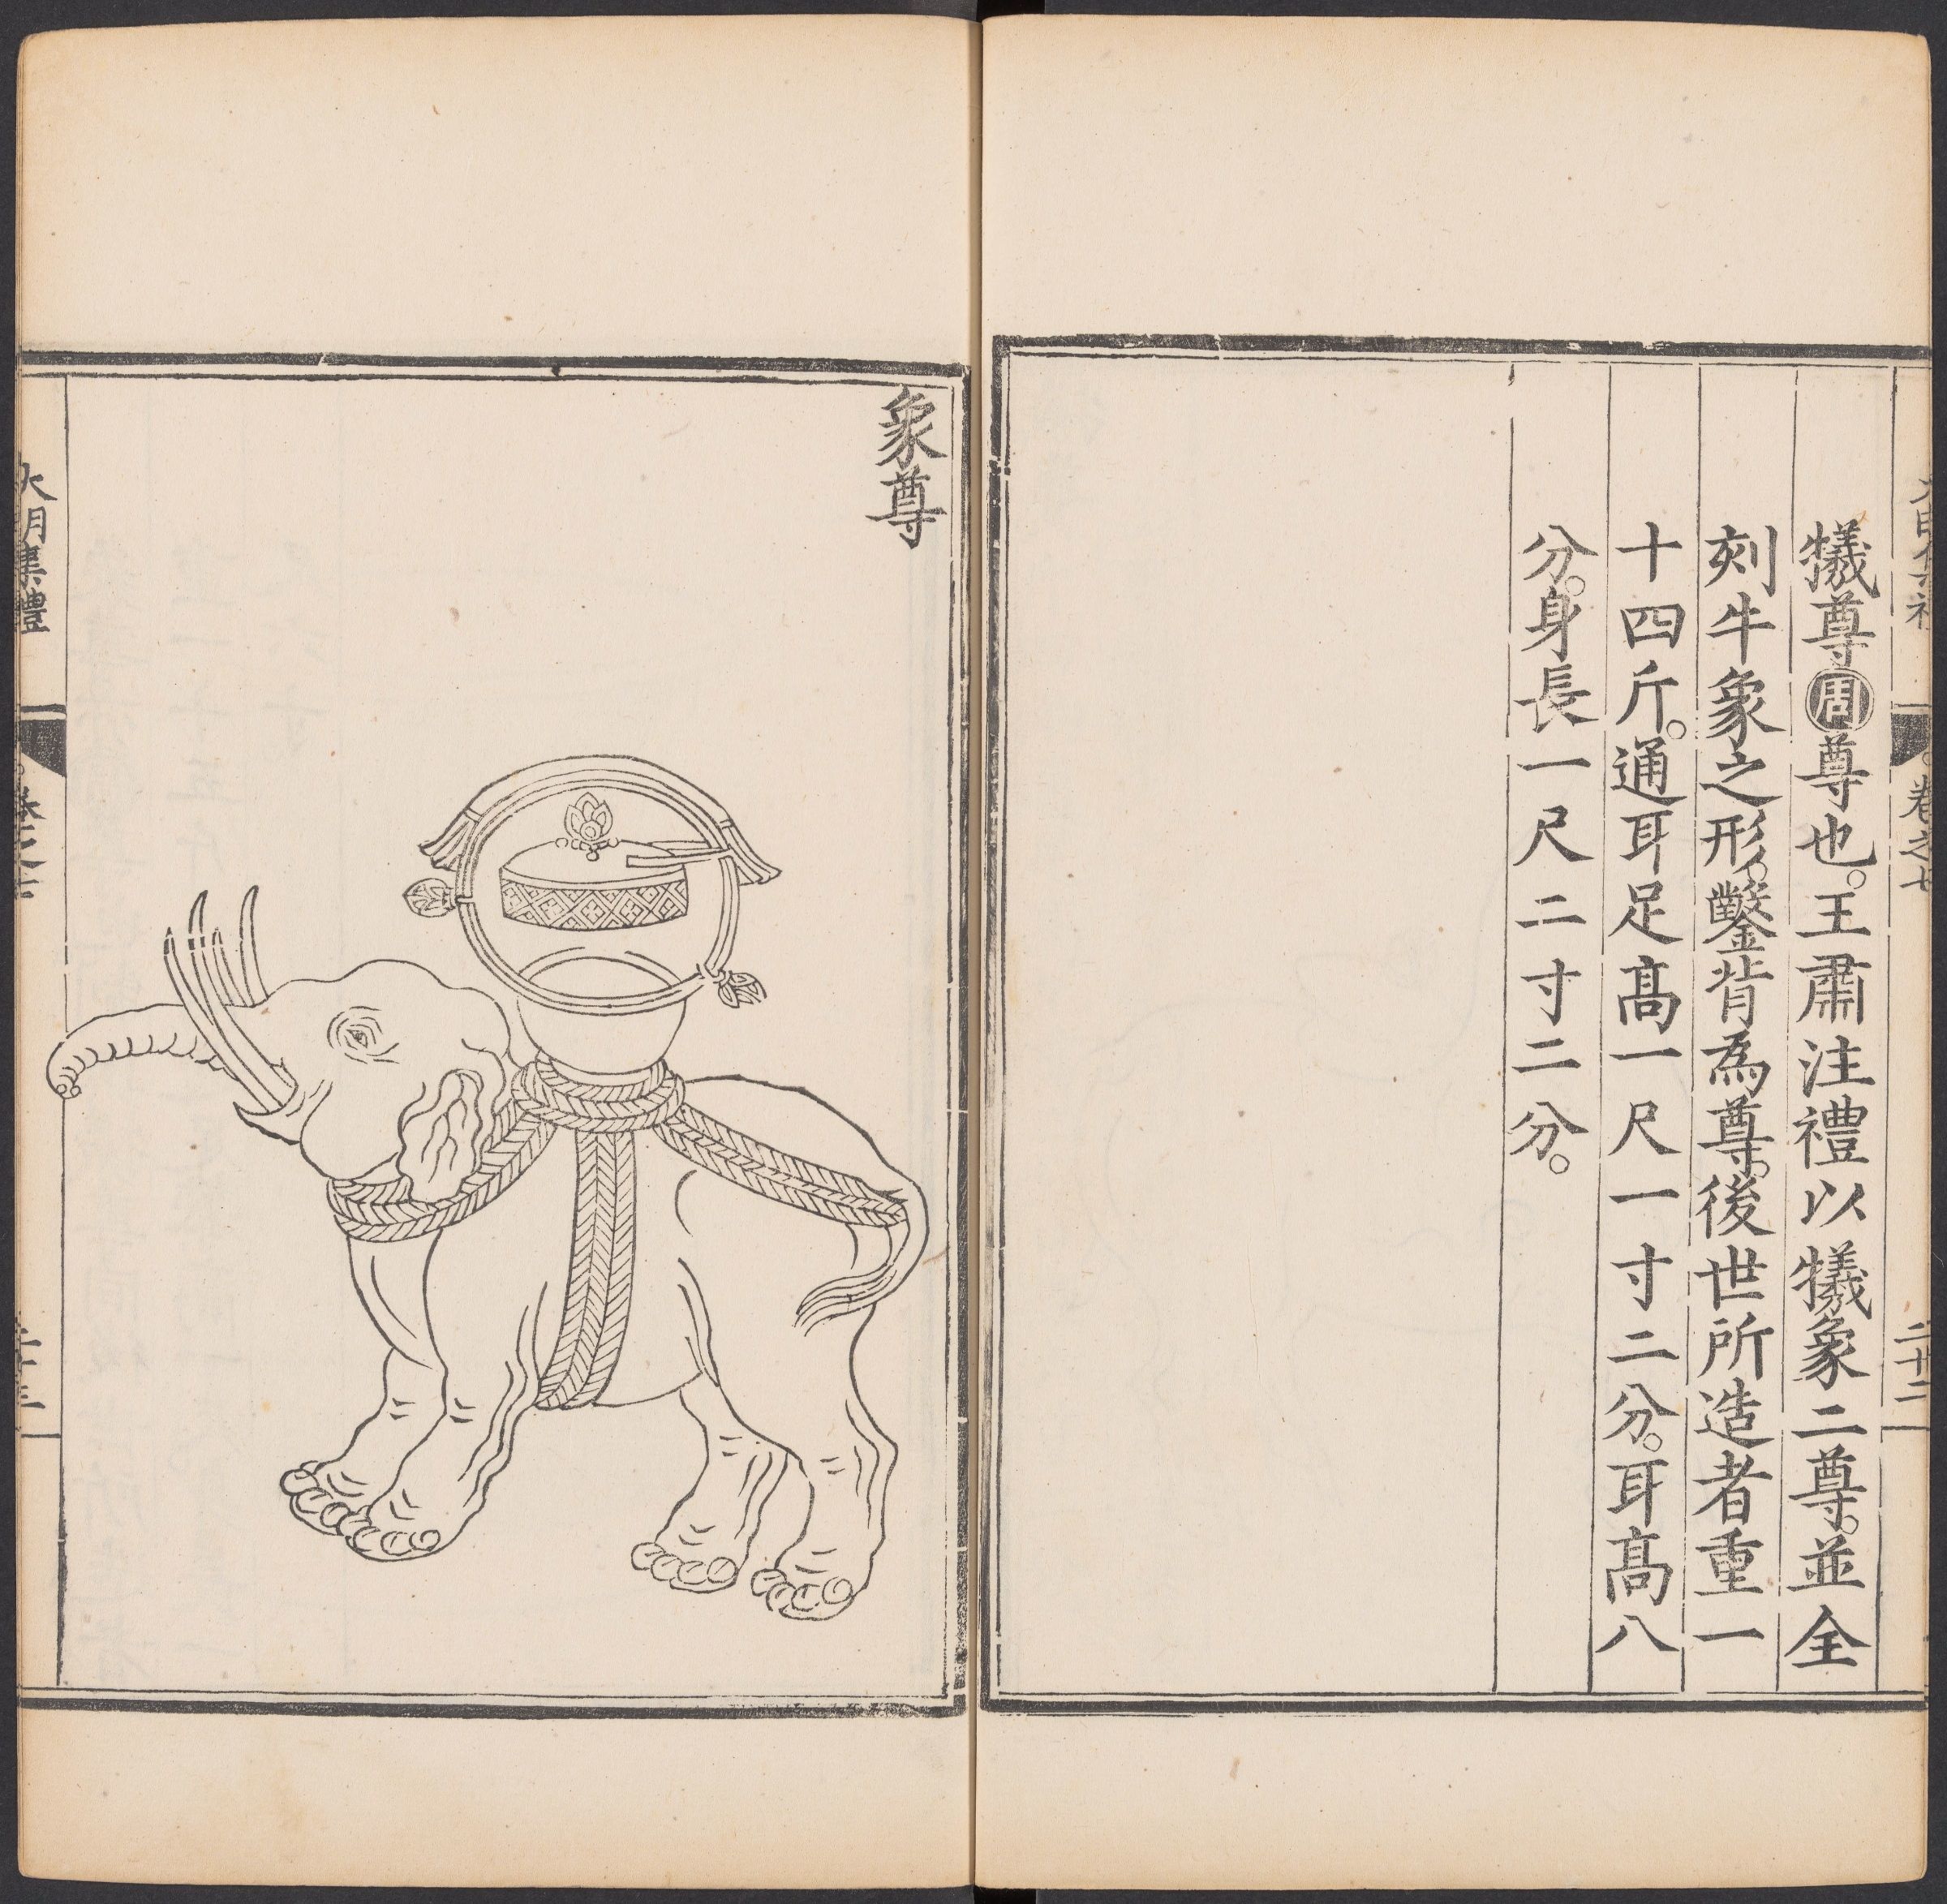 犧尊周尊也。王肅注禮以犧象二尊。並全
刻牛象之形。鑿背為尊。後世所造者重一
十四斤。通耳足高一尺一寸二分。耳高八
分。身長一尺二寸二分。
卷之七
二十二
象尊
大明集禮
卷之七